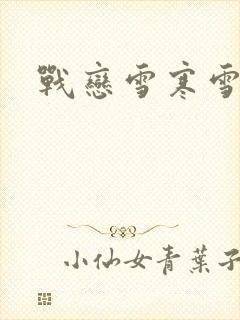 戰戀雪寒雪
小仙女青葉子